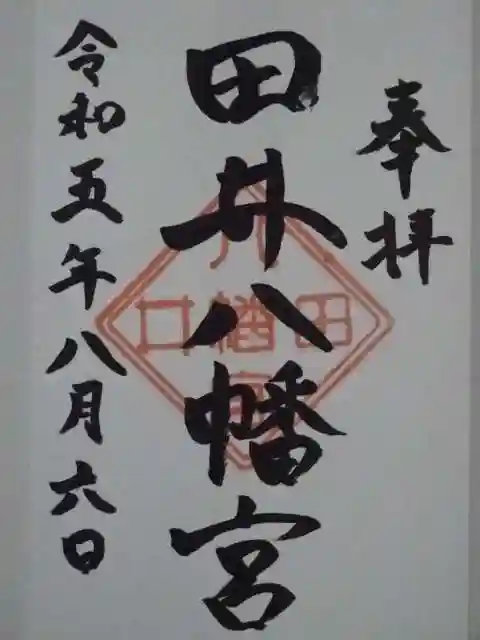 奉拝
田井八幡宮
令和五年八月六日
八
田幡井
宮